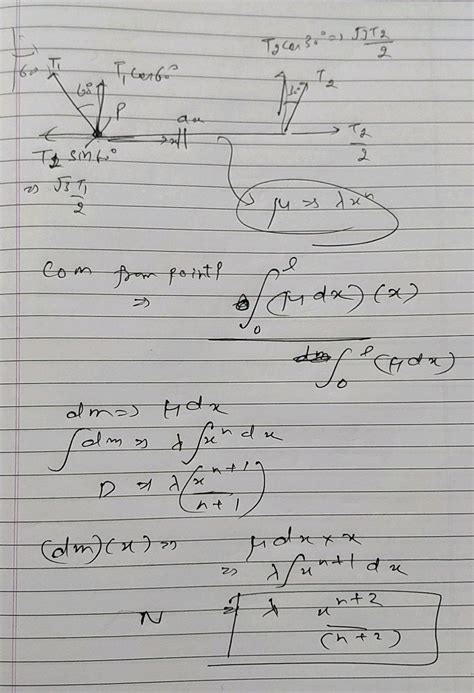 T₂ cos 30° => √3T₂/2
60° T₁
60°
T₁ cos 60°
30°
T₂
P
dx
x
T₂ sin 60°
T₂/2
=> √3T₁/2
μ => λxⁿ
Com from point P
=> ∫₀ˡ (μdx)(x)
∫₀ˡ (μdx)
dm => μdx
∫dm => λ∫xⁿdx
D => λ(xⁿ⁺¹/n+1)
(dm)(x) => μdx × x
=> λ∫xⁿ⁺¹ dx
N => λ xⁿ⁺²/(n+2)